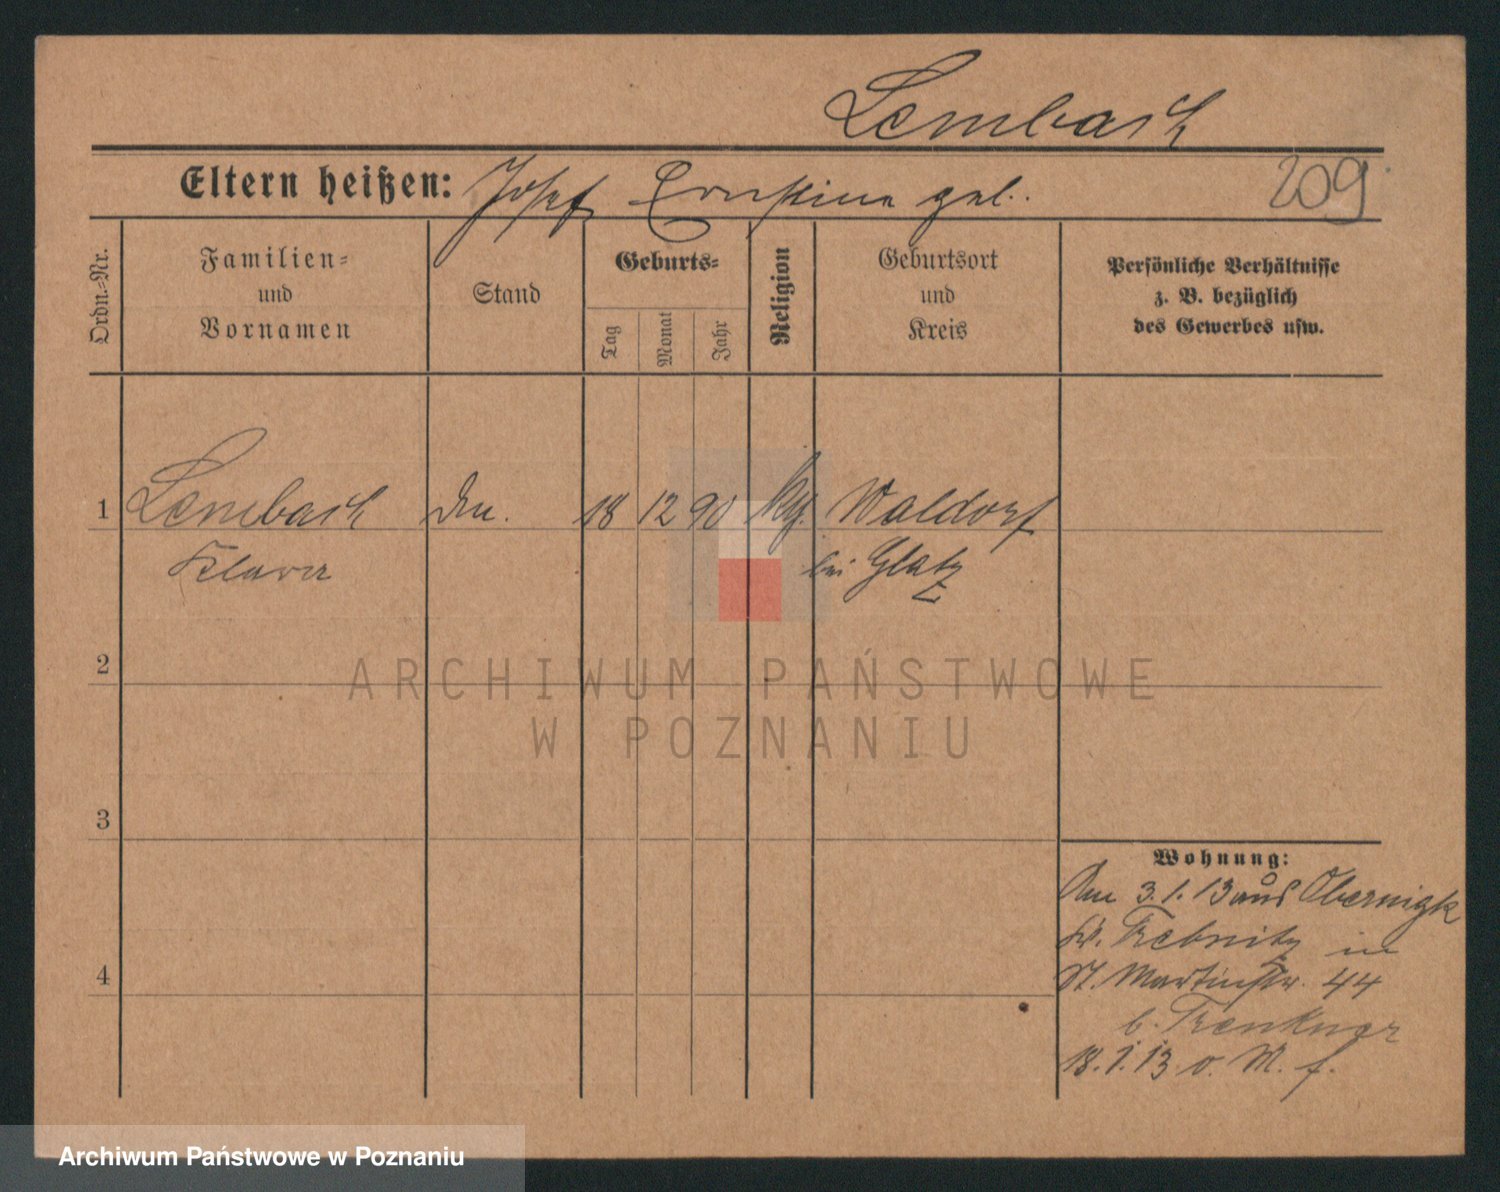 Lembach
Eltern heißen: Josef Ernstine geb.
209
Ordn.-Nr.
Familien- und Vornamen
Stand
Geburts-
Tag
Monat
Jahr
Religion
Geburtsort und Kreis
Persönliche Verhältnisse
z. B. bezüglich
des Gewerbes usw.
1 Lembach 18 12 90 Waldorf
bei Glatz
2
ARCHIWUM PAŃSTWOWE
W POZNANIU
3
Wohnung:
Am 3.1.13 aus Obernigk
Kr. Trebnitz in
St. Martinstr. 44
b. Trenkner
18.1.13 o. M. f.
4
Archiwum Państwowe w Poznaniu